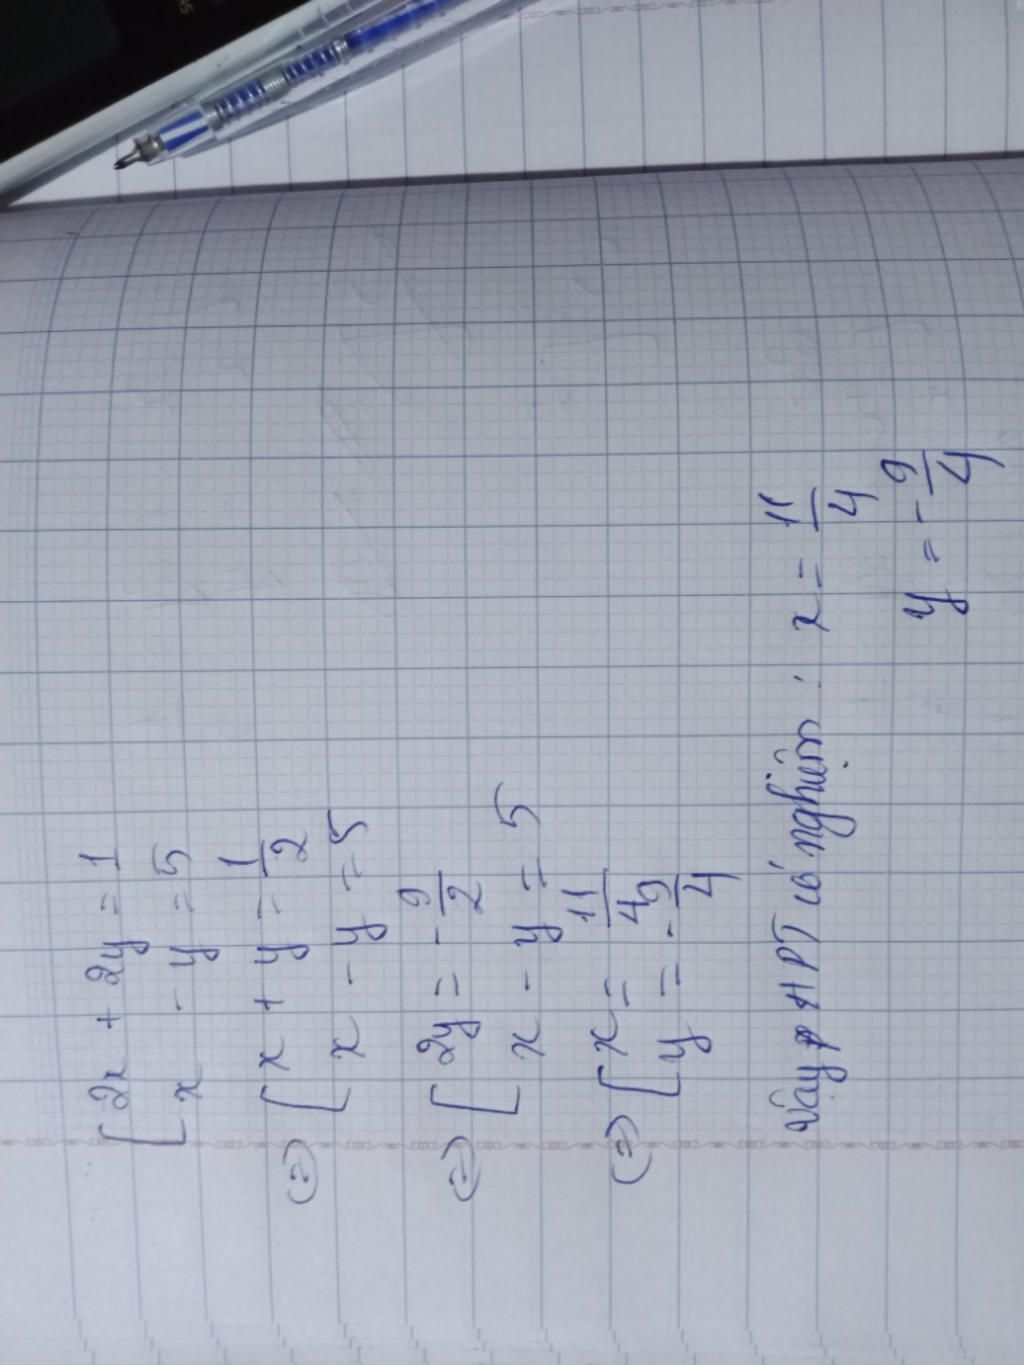 [2x + 2y = 1
x - y = 5
(=) [x + y = 1/2
x - y = 5
(=) [2y = -9/2
x - y = 5
(=) [x = 11/4
y = -9/4
Vậy HPT có nghiệm : x = 11/4
y = -9/4